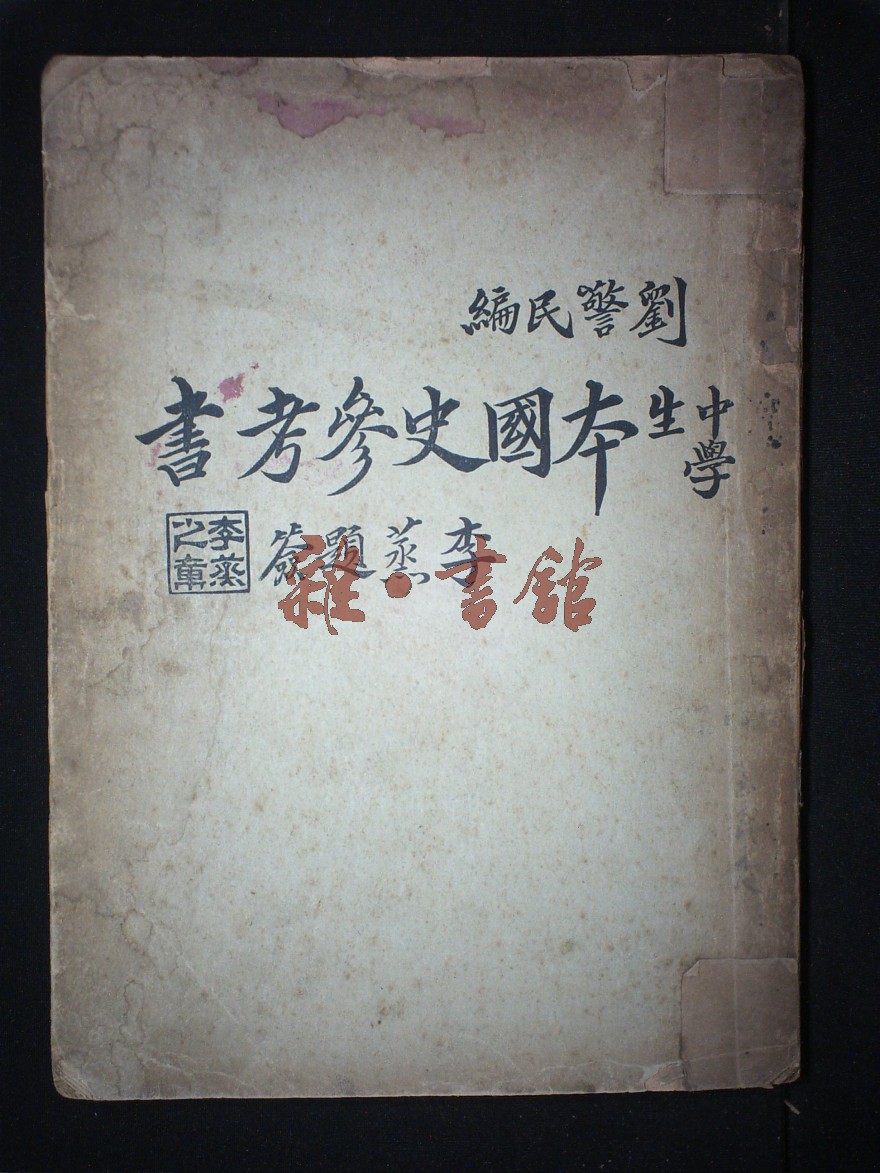 劉警民編
中學生本國史參考書
李蒸題簽
李蒸之章
雜·書館